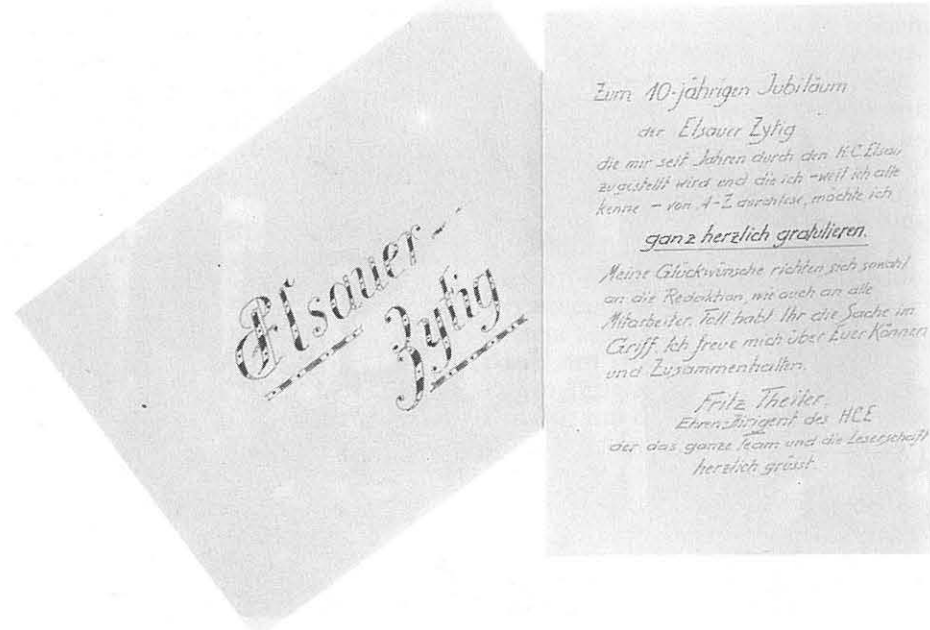 Elsauer-
Zytig
Zum 10-jährigen Jubiläum
der Elsauer Zytig
die mir seit Jahren durch den H.C. Elsau
zugestellt wird und die ich - weil ich alle
kenne - von A-Z durchlese, möchte ich
ganz herzlich gratulieren.
Meine Glückwünsche richten sich sowohl
an die Redaktion, wie auch an alle
Mitarbeiter. Toll habt Ihr die Sache im
Griff. Ich freue mich über Euer Können
und Zusammenhalten.
Fritz Theiler.
Ehrendirigent des HCE
der das ganze Team und die Leserschaft
herzlich grüsst.